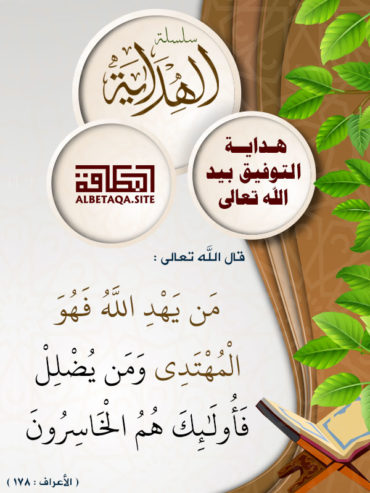 سلسلة
الهداية
هداية
التوفيق بيد
الله تعالى
البطاقة
ALBETAQA.SITE
قال الله تعالى :
مَن يَهْدِ اللَّهُ فَهُوَ
الْمُهْتَدِى وَمَن يُضْلِلْ
فَأُولَٰئِكَ هُمُ الْخَاسِرُونَ
( الأعراف : ١٧٨ )